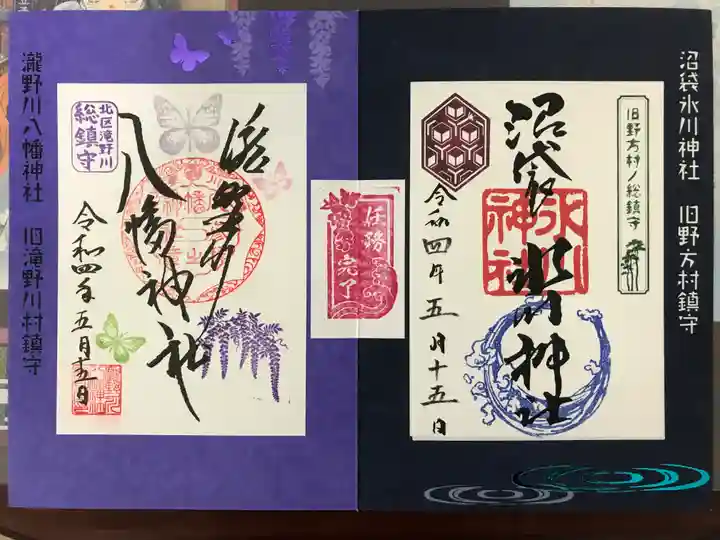 沼袋氷川神社 旧野方村鎮守
旧野方村ノ総鎮守
沼袋 氷川神社
氷川神社
令和四年五月十五日
任務
完了
北区滝野川
総鎮守
滝野川
八幡神社
令和四年五月十五日
瀧野川八幡神社 旧滝野川村鎮守